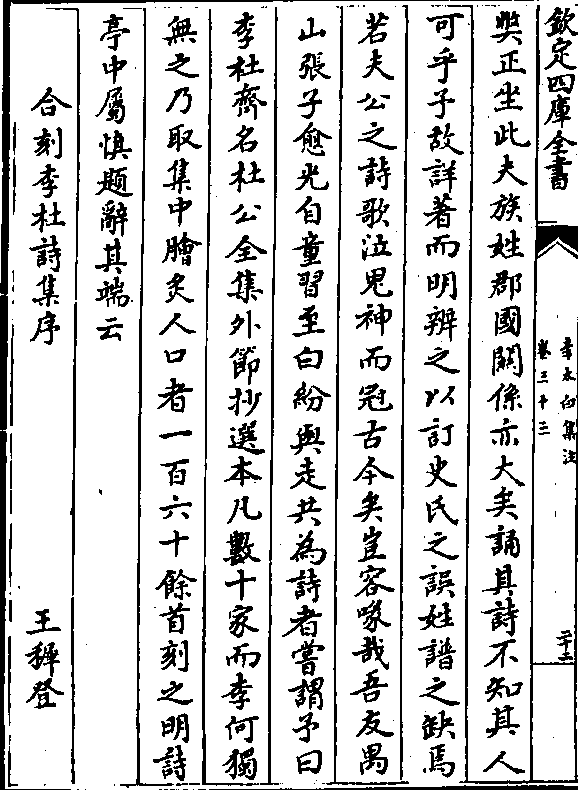 欽定四庫全書
李太白集注
卷三十三
二十二
與正坐此夫族姓郡國關係亦大矣誦其詩不知其人
可乎予故詳著而明辨之以訂史氏之誤姓譜之缺焉
若夫公之詩歌泣鬼神而冠古今矣豈容喙哉吾友禺
山張子愈光自童習至白紛與走共為詩者嘗謂予曰
李杜齊名杜公全集外節抄選本凡數十家而李何獨
無之乃取集中膾炙人口者一百六十餘首刻之明詩
亭中屬慎題辭其端云
合刻李杜詩集序
王穉登